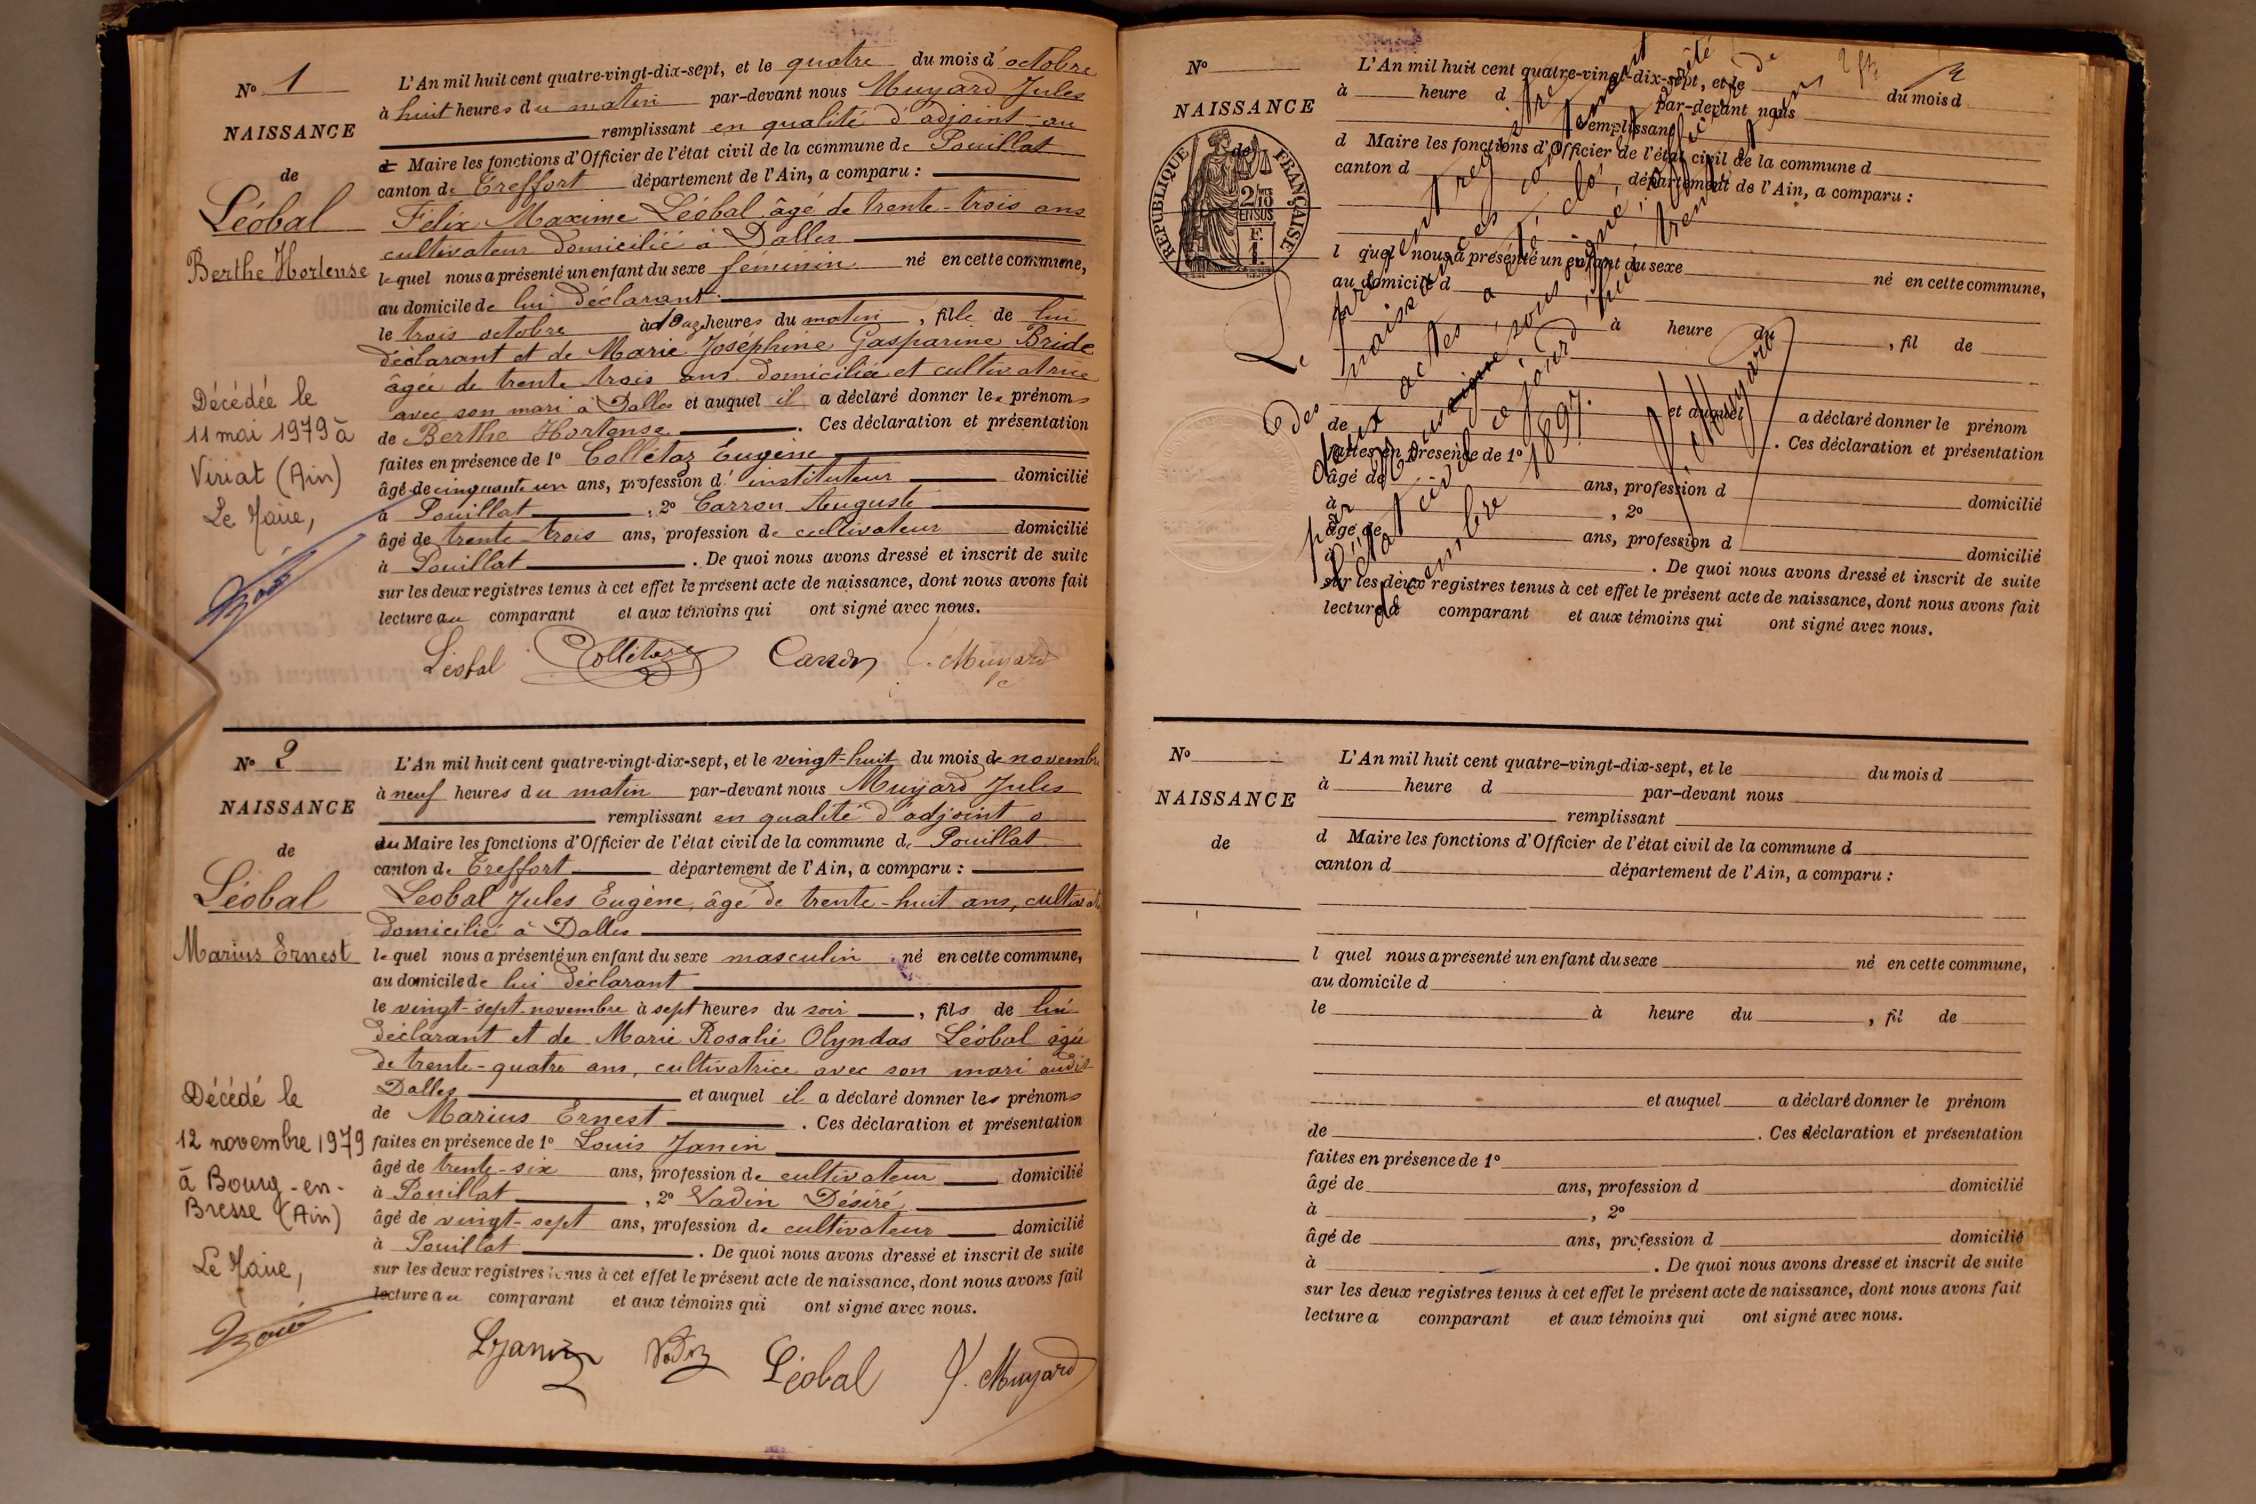 N° 1
NAISSANCE
de
Léobal
Berthe Hortense
Décédée le
11 mai 1979 à
Viriat (Ain)
Le Maire,
L'An mil huit cent quatre-vingt-dix-sept, et le quatre du mois d'octobre
à huit heures du matin par-devant nous Muyard Jules
remplissant en qualité d'adjoint au
Maire les fonctions d'Officier de l'état civil de la commune de Pouillat
canton de Treffort département de l'Ain, a comparu :
Félix Maxime Léobal âgé de trente-trois ans
cultivateur domicilié à Dalles
lequel nous a présenté un enfant du sexe féminin né en cette commune,
au domicile de lui déclarant
le trois octobre à onze heures du matin, fille de lui
déclarant et de Marie Joséphine Gasparine Bride
âgée de trente trois ans domiciliée et cultivatrice
avec son mari à Dalles et auquel il a déclaré donner les prénoms
de Berthe Hortense. Ces déclaration et présentation
faites en présence de 1° Colletaz Eugène
âgé de cinquante un ans, profession d'instituteur domicilié
à Pouillat, 2° Carron Auguste
âgé de trente-trois ans, profession de cultivateur domicilié
à Pouillat. De quoi nous avons dressé et inscrit de suite
sur les deux registres tenus à cet effet le présent acte de naissance, dont nous avons fait
lecture au comparant et aux témoins qui ont signé avec nous.
Léobal Colletaz Carron J. Muyard
N° 2
NAISSANCE
de
Léobal
Marius Ernest
Décédé le
12 novembre 1979
à Bourg-en-
Bresse (Ain)
Le Maire,
L'An mil huit cent quatre-vingt-dix-sept, et le vingt-huit du mois de novembre
à neuf heures du matin par-devant nous Muyard Jules
remplissant en qualité d'adjoint
au Maire les fonctions d'Officier de l'état civil de la commune de Pouillat
canton de Treffort département de l'Ain, a comparu :
Léobal Jules Eugène, âgé de trente-huit ans, cultivat
domicilié à Dalles
lequel nous a présenté un enfant du sexe masculin né en cette commune,
au domicile de lui déclarant
le vingt-sept novembre à sept heures du soir, fils de lui
déclarant et de Marie Rosalie Olyndas Léobal âgée
de trente-quatre ans, cultivatrice avec son mari audit
Dalles et auquel il a déclaré donner les prénoms
de Marius Ernest. Ces déclaration et présentation
faites en présence de 1° Louis Janin
âgé de trente-six ans, profession de cultivateur domicilié
à Pouillat, 2° Vadin Désiré
âgé de vingt-sept ans, profession de cultivateur domicilié
à Pouillat. De quoi nous avons dressé et inscrit de suite
sur les deux registres tenus à cet effet le présent acte de naissance, dont nous avons fait
lecture au comparant et aux témoins qui ont signé avec nous.
L Janin Vadin Léobal J. Muyard
N°
NAISSANCE
de
RÉPUBLIQUE FRANÇAISE
2/10 EN SUS
L'An mil huit cent quatre-vingt-dix-sept, et le du mois d
à heure d par-devant nous
remplissant
d Maire les fonctions d'Officier de l'état civil de la commune d
canton d département de l'Ain, a comparu :
l quel nous a présenté un enfant du sexe né en cette commune,
au domicile d
le à heure du, fil de
et auquel a déclaré donner le prénom
de. Ces déclaration et présentation
faites en présence de 1°
âgé de ans, profession d domicilié
à, 2°
âgé de ans, profession d domicilié
à. De quoi nous avons dressé et inscrit de suite
sur les deux registres tenus à cet effet le présent acte de naissance, dont nous avons fait
lecture a comparant et aux témoins qui ont signé avec nous.
Le présent registre
des naissances contenant
deux actes a été clos
par nous soussigné officier de
l'état civil ce jourd'hui trente un
décembre 1897.
J. Muyard
N°
NAISSANCE
de
L'An mil huit cent quatre-vingt-dix-sept, et le du mois d
à heure d par-devant nous
remplissant
d Maire les fonctions d'Officier de l'état civil de la commune d
canton d département de l'Ain, a comparu :
l quel nous a présenté un enfant du sexe né en cette commune,
au domicile d
le à heure du, fil de
et auquel a déclaré donner le prénom
de. Ces déclaration et présentation
faites en présence de 1°
âgé de ans, profession d domicilié
à, 2°
âgé de ans, profession d domicilié
à. De quoi nous avons dressé et inscrit de suite
sur les deux registres tenus à cet effet le présent acte de naissance, dont nous avons fait
lecture a comparant et aux témoins qui ont signé avec nous.